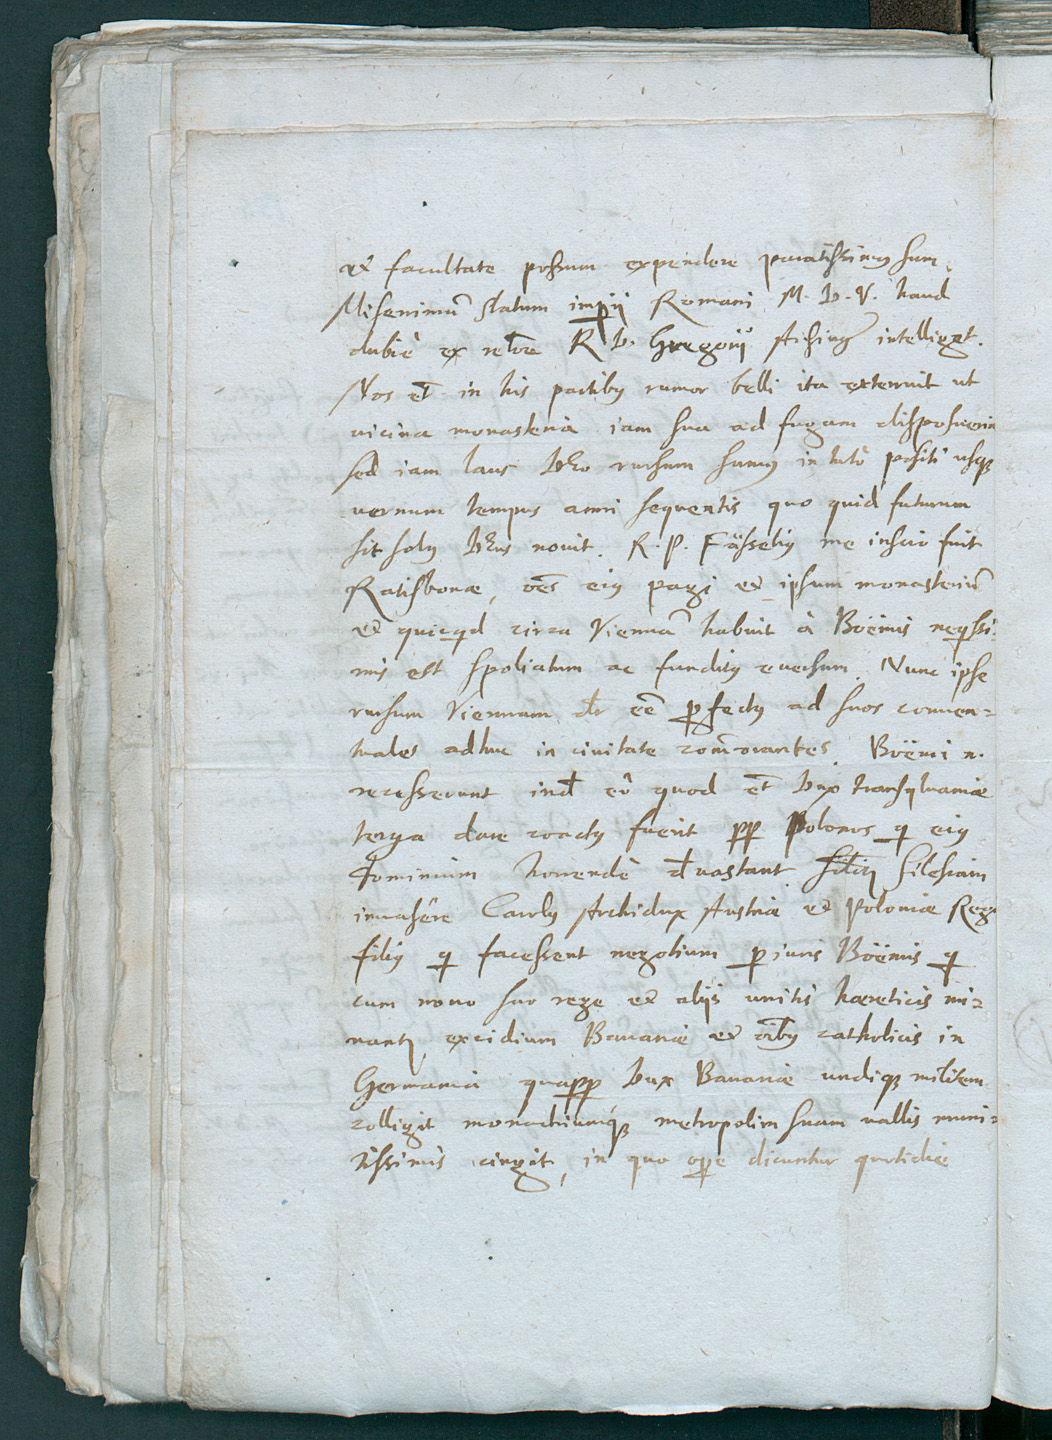 et facultate possum expendere paratissimus sum.
Miserimū statum impij Romani M. D. V. haud
dubiè ex relōe R D. Gregorij intelliget.
Nos et̄ in his partibus rumor belli ita exterruit ut
vicina monasteria iam sua ad fugam disposuerin
sed iam laus Deo rursum sumus in tuto positi usque
vernum tempus anni sequentis quo quid futurum
sit solus Deus novit. R. P. Fässelius me inscio fuit
Ratisbonæ, oēs eius pagi et ipsum monasteriū
et quicqd circa Viennā habuit à Boëmis neqssi-
mis est spoliatum ac funditus eversum. Nunc ipse
rursum Viennam dr eē pfectus ad suos conven=
tuales adhuc in civitate com̄orantes. Boëmi n.
recesserunt ind eò quod et̄ Dux transylvaniæ
terga dare coactus fuerit pp Polonos q eius
dominium horrendè dvastant. Silesiam
invasêre Carolus Archidux Austriæ et Poloniæ Reg
filius q facessent negotium piuris Boëmis q
cum novo suo rege et alijs unitis hæreticis mi=
nantur excidium Bavariæ et oībus catholicis in
Germania quapp Dux Bavariæ undique militem
colligit monachiumque metropolim suam vallis muni=
tissimis cingit, in quo ope dicuntur quotidie